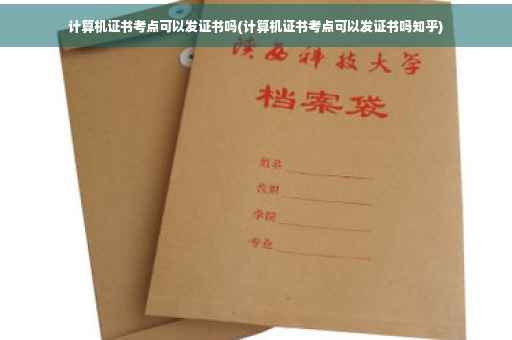 计算机证书考点可以发证书吗(计算机证书考点可以发证书吗知乎)
陕西科技大学
档案袋
姓名
性别
学院
专业